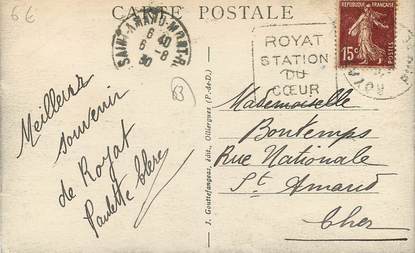 6€
CARTE POSTALE
SAINT-AMAND-MONTR
6 40
6 -8
30
63
ROYAT
STATION
DU
CŒUR
REPUBLIQUE FRANÇAISE
15c
POSTES
Meilleur
souvenir
de Royat
Paulette
J. Gouttefangeas, édit., Ollierques (P.-de-D.)
Mademoiselle
Bontemps
Rue Nationale
St Amand
Cher